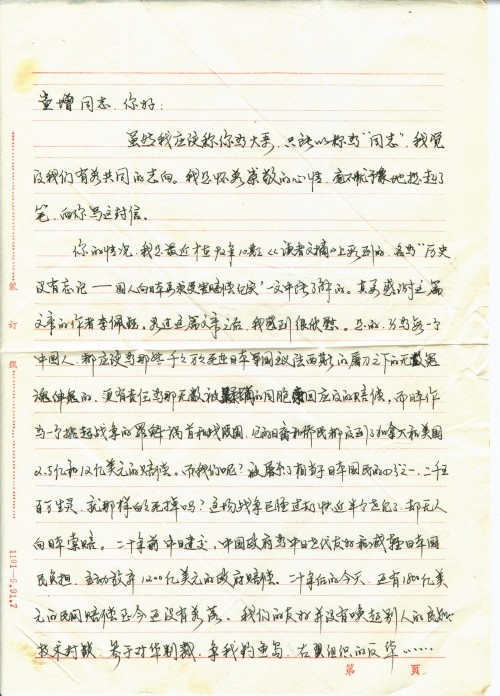 童增同志，你好：
虽然我应该称你为大哥，只能以称为"同志"，我觉
得我们有着共同的志向。我怀着崇敬的心情，毫不犹豫地提起了
笔，向你写这封信。
你的情况，我是最近才在今年10期《读者文摘》上看到的，名为"历史
没有忘记——国人向日本要求受害赔偿纪实"一文中所了解的。真要感谢这篇
文章的作者李佩钰。看过这篇文章之后，我感到很欣慰。是的，身为每一个
中国人，都应该为那些千千万万死在日本军国主义法西斯的屠刀之下的无数冤
魂伸冤的，更有责任为那无数被的同胞索回应该的赔偿。而日本作
为一个挑起战争的罪魁祸首和战败国，它的日裔和侨民都得到了加拿大和美国
2.5亿和12亿美元的赔偿。而我们呢？被屠杀了相当于日本国民的四分之一，二千五
百万生灵，就那样白白死掉吗？这场战争已经过去快近半个世纪了，却无人
向日本索赔。二十年前中日建交，中国政府为中日世代友好和减轻日本国
民负担，主动放弃1200亿美元的政府赔偿。二十年后的今天，还有1800亿美
元的民间赔偿至今还没有着落。我们的友好并没有唤起别人的良知，
技术封锁，参于对华制裁，争我钓鱼岛，右翼组织的反华……
第 页
装
订
线
1101-6.91.7